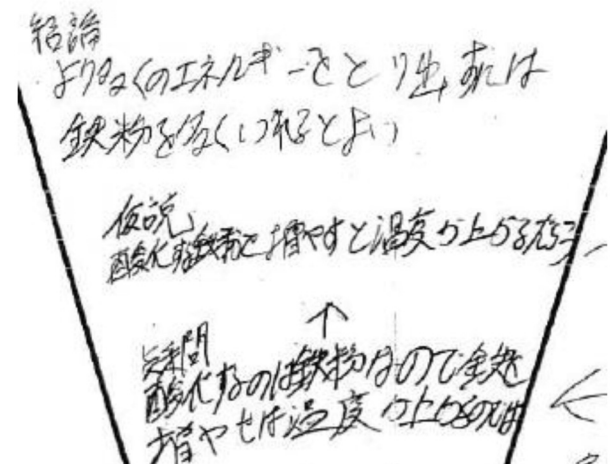 結論
より多くのエネルギーをとり出すには
鉄粉を多くいれるとよい
仮説
酸化する鉄粉を増やすと温度が上がるだろう
↑
疑問
酸化するのは鉄粉なので鉄を
増やせば温度が上がるのでは